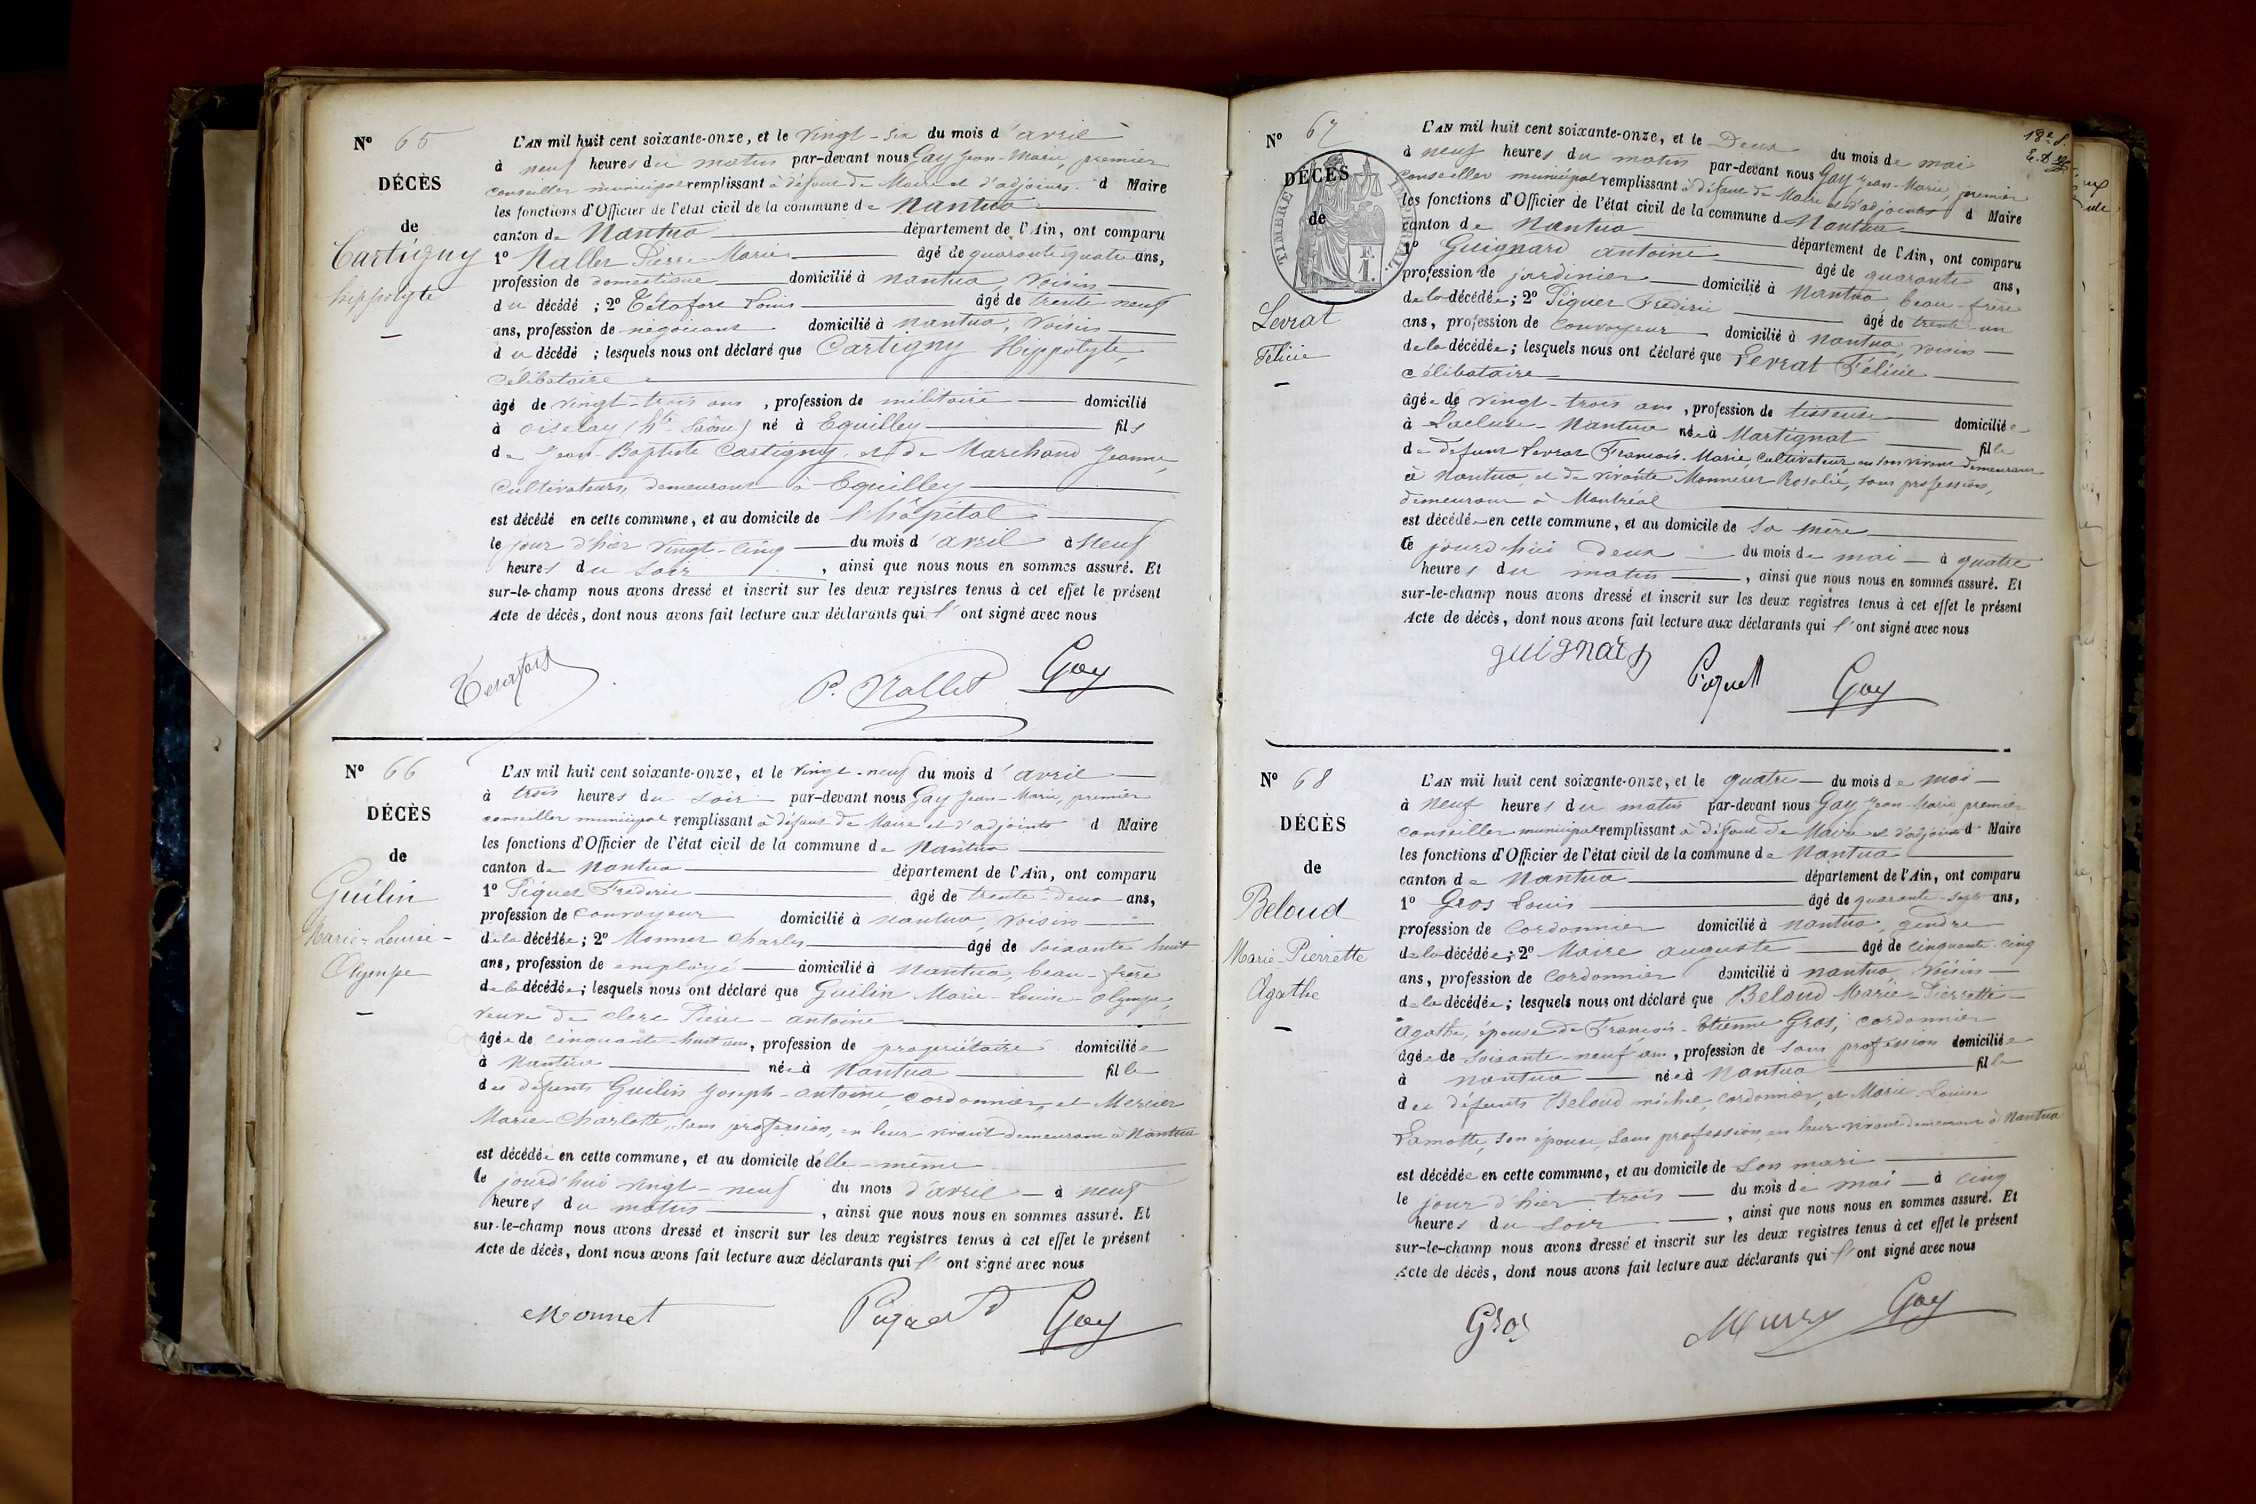 Nº 65
DÉCÈS
de
Cartigny
hippolyte
L'AN mil huit cent soixante-onze, et le vingt-six du mois d'avril
à neuf heures du matin par-devant nous Gay Jean-Marie, premier
conseiller municipal remplissant à défaut de Maire et d'adjoints d Maire
les fonctions d'Officier de l'état civil de la commune de Nantua
canton de Nantua département de l'Ain, ont comparu
1º Nallet Pierre Marie âgé de quarante quatre ans,
profession de domestique domicilié à nantua, voisin
du décédé ; 2º Louis âgé de trente neuf
ans, profession de négociant domicilié à nantua, voisin
du décédé ; lesquels nous ont déclaré que Cartigny Hippolyte,
célibataire
âgé de vingt-trois ans, profession de militaire domicilié
à oiselay (hte Saône) né à Equilley fils
de Jean-Baptiste Cartigny et de Marchand Jeanne,
cultivateurs, demeurant à Equilley
est décédé en cette commune, et au domicile de l'hôpital
le jour d'hier vingt-cinq du mois d'avril à neuf
heures du soir, ainsi que nous nous en sommes assuré. Et
sur-le-champ nous avons dressé et inscrit sur les deux registres tenus à cet effet le présent
Acte de décès, dont nous avons fait lecture aux déclarants qui l'ont signé avec nous
P. Nallet Gay
Nº 66
DÉCÈS
de
Guilin
Marie-Louise-
Olympe
L'AN mil huit cent soixante-onze, et le vingt-neuf du mois d'avril
à trois heures du soir par-devant nous Gay Jean-Marie, premier
conseiller municipal remplissant à défaut de Maire et d'adjoints d Maire
les fonctions d'Officier de l'état civil de la commune de Nantua
canton de Nantua département de l'Ain, ont comparu
1º Piquet Frédéric âgé de trente-deux ans,
profession de convoyeur domicilié à nantua, voisin
de la décédée ; 2º Monnet Charles âgé de soixante huit
ans, profession de employé domicilié à Nantua, beau-frère
de la décédée ; lesquels nous ont déclaré que Guilin Marie-Louise-Olympe,
veuve de clerc Pierre-antoine
âgée de cinquante-huit ans, profession de propriétaire domiciliée
à Nantua née à Nantua fille
des défunts Guilin Joseph-antoine, cordonnier, et Mercier
Marie-Charlotte, sans profession, en leur vivant demeurant à Nantua
est décédée en cette commune, et au domicile d'elle-même
le jourd'hui vingt-neuf du mois d'avril à neuf
heures du matin, ainsi que nous nous en sommes assuré. Et
sur-le-champ nous avons dressé et inscrit sur les deux registres tenus à cet effet le présent
Acte de décès, dont nous avons fait lecture aux déclarants qui l'ont signé avec nous
Monnet Piquet Gay
18e f.
Nº 67
DÉCÈS
de
TIMBRE IMPÉRIAL
F. 1.
Levrat
Félicie
L'AN mil huit cent soixante-onze, et le Deux du mois de mai
à neuf heures du matin par-devant nous Gay Jean-Marie, premier
conseiller municipal remplissant à défaut de Maire et d'adjoints d Maire
les fonctions d'Officier de l'état civil de la commune d Nantua
canton de Nantua département de l'Ain, ont comparu
1º Guignard antoine âgé de quarante ans,
profession de jardinier domicilié à Nantua beau-frère
de la décédée ; 2º Piquet Frédéric âgé de trente-un
ans, profession de convoyeur domicilié à nantua, voisin
de la décédée ; lesquels nous ont déclaré que Levrat Félicie
célibataire
âgée de vingt-trois ans, profession de tisseuse domiciliée
à Lacluse-Nantua née à Martignat fille
de défunt Levrat François-Marie, cultivateur en son vivant demeurant
à Nantua, et de vivante Monneret Rosalie, sans profession,
demeurant à Montréal
est décédée en cette commune, et au domicile de sa mère
le jourd'hui deux du mois de mai à quatre
heures du matin, ainsi que nous nous en sommes assuré. Et
sur-le-champ nous avons dressé et inscrit sur les deux registres tenus à cet effet le présent
Acte de décès, dont nous avons fait lecture aux déclarants qui l'ont signé avec nous
guignard Piquet Gay
Nº 68
DÉCÈS
de
Beloud
Marie-Pierrette
Agathe
L'AN mil huit cent soixante-onze, et le quatre du mois de mai
à neuf heures du matin par-devant nous Gay Jean-Marie premier
conseiller municipal remplissant à défaut de Maire et d'adjoints d Maire
les fonctions d'Officier de l'état civil de la commune de Nantua
canton de Nantua département de l'Ain, ont comparu
1º Gros Louis âgé de quarante-sept ans,
profession de Cordonnier domicilié à nantua, gendre
de la décédée ; 2º auguste âgé de cinquante-cinq
ans, profession de Cordonnier domicilié à nantua, voisin
de la décédée ; lesquels nous ont déclaré que Beloud Marie-Pierrette-
Agathe, épouse de François-Etienne Gros, cordonnier
âgée de soixante-neuf ans, profession de sans profession domiciliée
à nantua née à Nantua fille
des défunts Beloud michel, cordonnier, et Marie-Louise
Lamotte, son épouse, sans profession, en leur vivant demeurant à Nantua
est décédée en cette commune, et au domicile de son mari
le jour d'hier trois du mois de mai à cinq
heures du soir, ainsi que nous nous en sommes assuré. Et
sur-le-champ nous avons dressé et inscrit sur les deux registres tenus à cet effet le présent
Acte de décès, dont nous avons fait lecture aux déclarants qui l'ont signé avec nous
Gros Gay